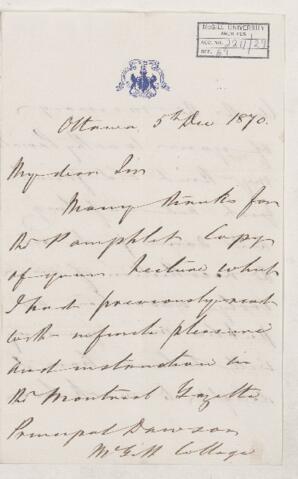 McGILL UNIVERSITY
ARCHIVES
ACC. NO. 2211/27
REF. 69
Ottawa 5th Dec 1870.
My dear Sir
Many thanks for
the Pamphlet Copy
of your Lecture which
I had previously read
with infinite pleasure
and instruction in
the Montreal Gazette
Principal Dawson
McGill College